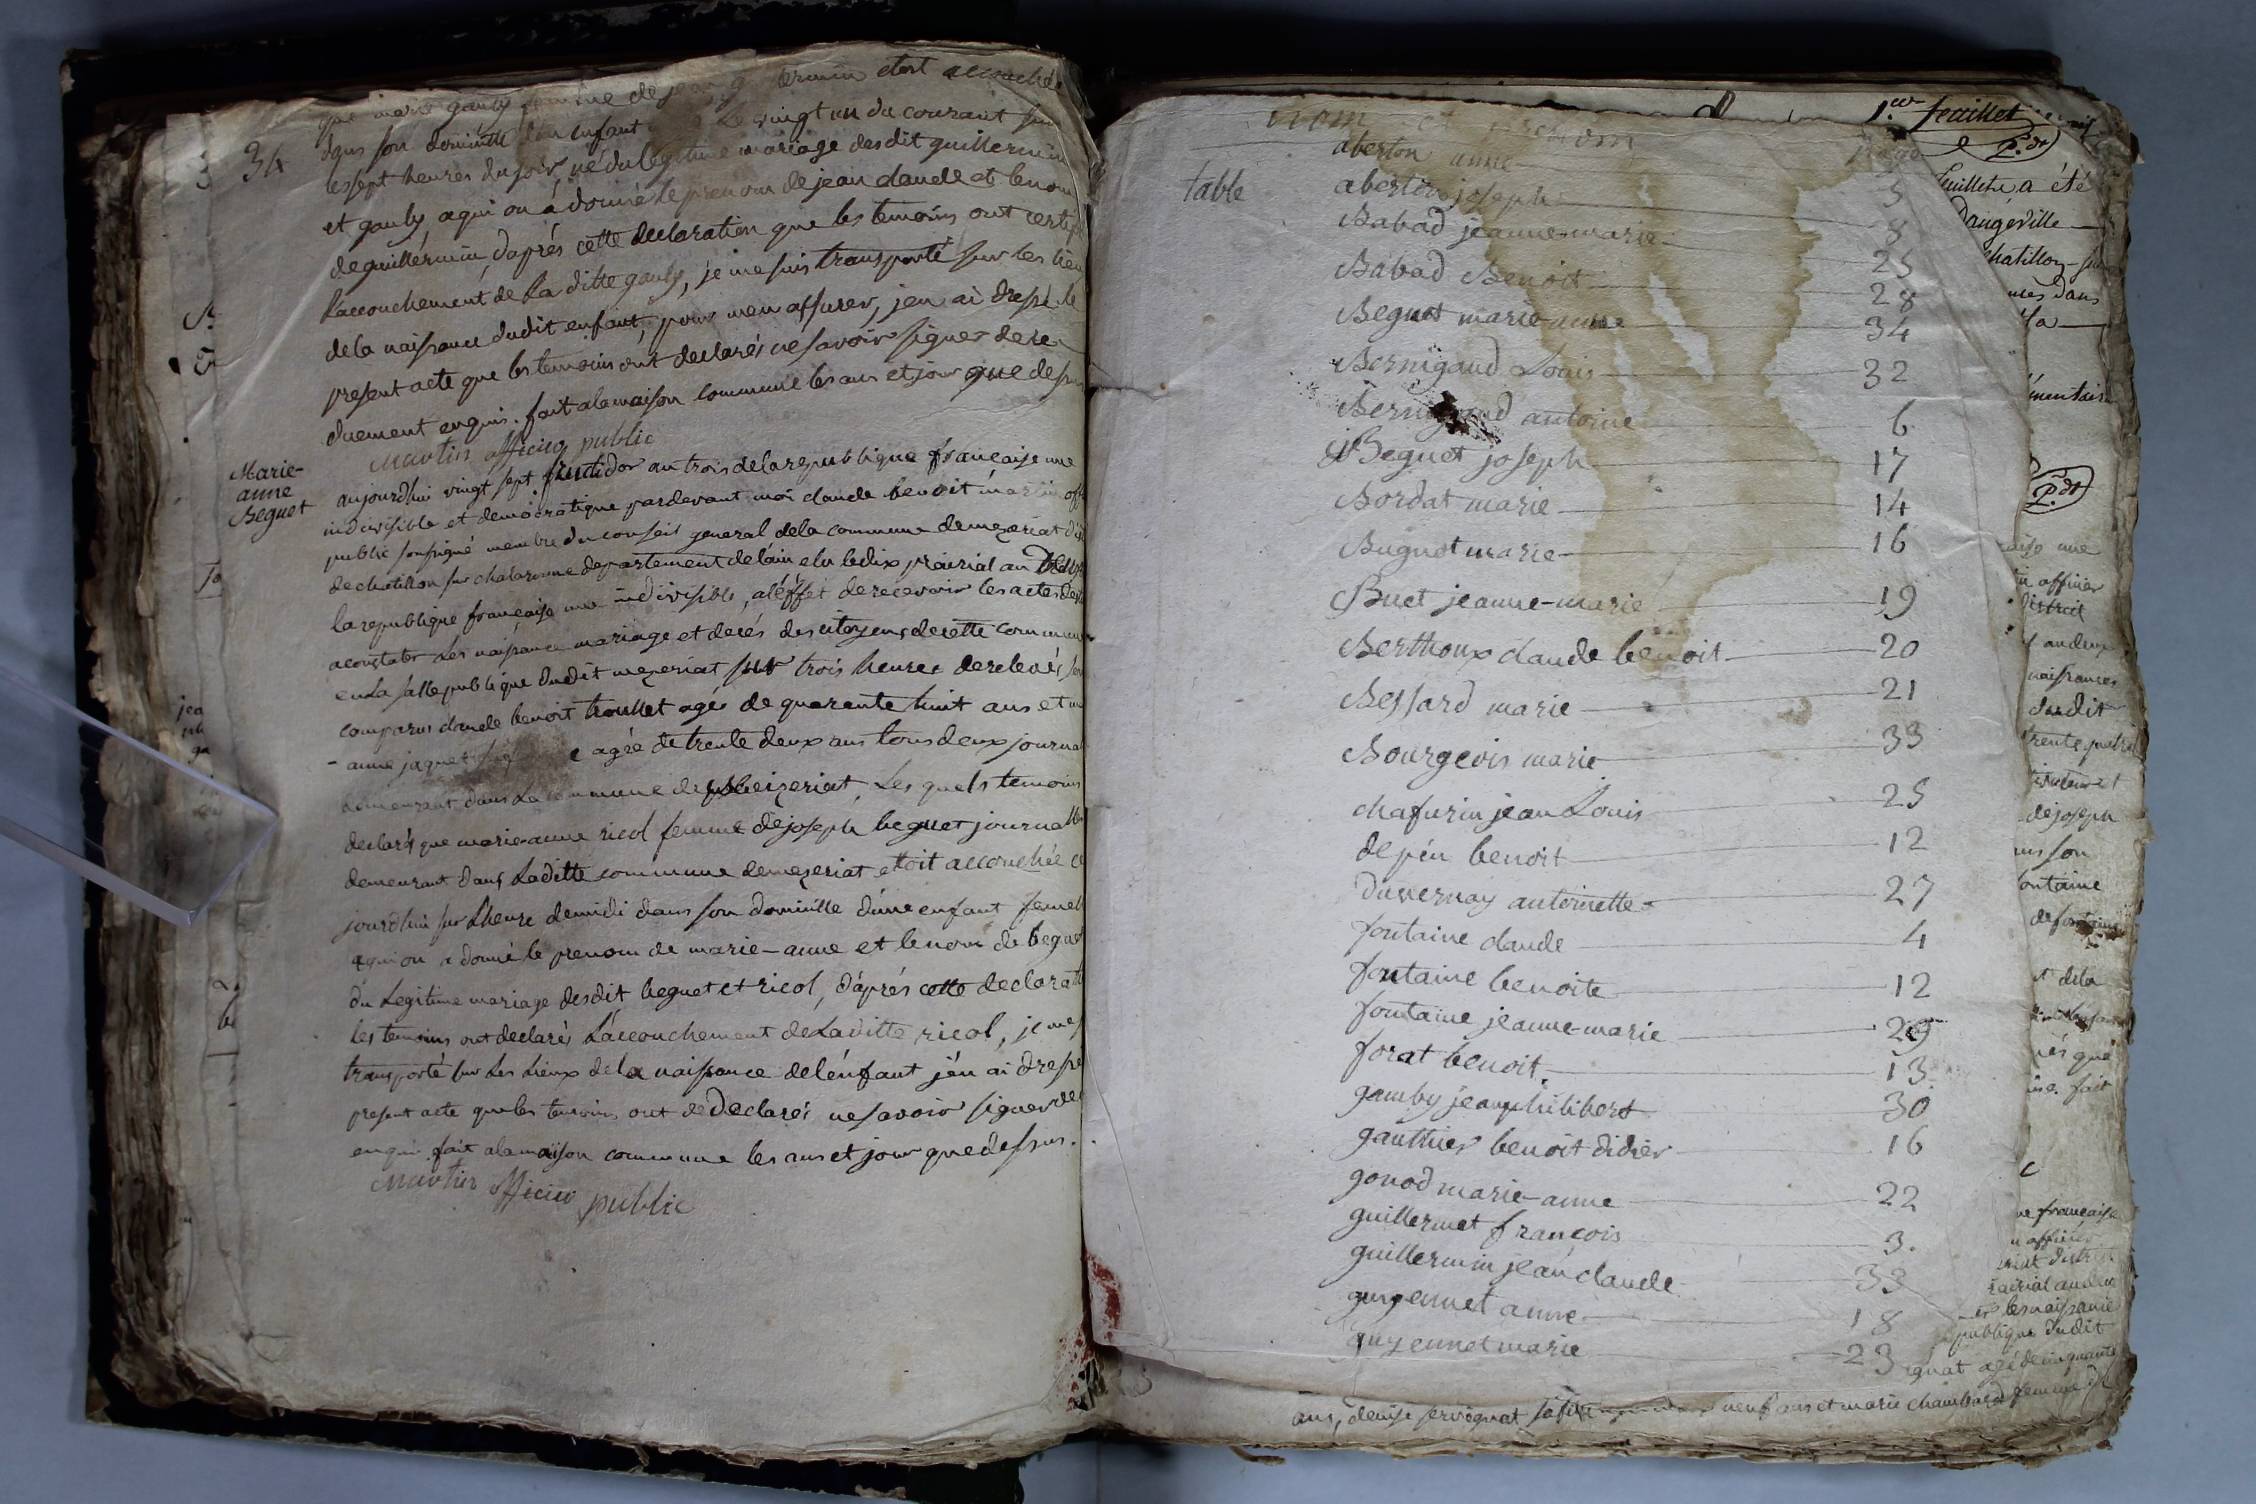 34
que marie gauly femme de jean guillermin etoit accouchée
dans son domicille d'un enfant le vingt un du courant sur
les sept heures du soir, né du legitime mariage desdit guillermin
et gauly, a qui on à donné le prenom de jean claude et le nom
de guillermin, d'aprés cette declaration que les temoins ont certifié
l'accouchement de la ditte gauly, je me suis transporté sur les lieu
de la naissance dudit enfant, pour m'en assurer, j'en ai dressé le
present acte que les temoins ont declarés ne savoir signer de ce
duement enquis. fait a la maison commune les ans et jour que dessus
Martin officier public
Marie-
anne
Beguet
aujourdhui vingt sept fructidor an trois de la republique française une
indivisible et democratique pardevant moi claude benoit martin off
public soussigné membre du conseil general de la commune de mezeriat dis
de chatillon sur chalaronne departement de l'ain elu le dix prairial an deux
la republique française une indivisible, a l'éffet de recevoir les actes des
a constater les naissance mariage et decés des citoyens de cette commun
en la salle publique dudit mezeriat sur trois heures de relevés
comparus claude benoit trouillet agés de quarente huit ans et
- anne jaquet agée de trente deux ans tous deux journal
demeurant dans la commune de Meizeriat, les quels temoins
declaré que marie-anne ricol femme de joseph beguet journallier
demeurant dans laditte commune de mezeriat etoit accouchée ce
jourdhui sur l'heure de midi dans son domicille d'une enfant femel
a qui on a donné le prenom de marie-anne et le nom de beguet
du legitime mariage desdit beguet et ricol, d'aprés cette declarati
les temoins ont declarés l'accouchement de laditte ricol, je me s
transporté sur les lieux de la naissance de l'énfant j'én ai dressé
present acte que les temoins ont de declarés ne savoir signer de
enquis. fait a la maison commune les ans et jour que dessus.
Martin officier public
nom et prenom page
table
aberton anne 5
aberton joseph 8
Babad jeanne-marie 25
Babad Benoit 28
Beguet marie-anne 34
Bernigaud Louis 32
Bernigaud antoine 6
Beguet joseph 17
Bordat marie 14
Buguet marie 16
Buet jeanne-marie 19
Berthoux claude benoit 20
Bessard marie 21
Bourgeois marie 33
chafurin jean Louis 25
depén benoit 12
duvernay antoinette 27
fontaine claude 4
fontaine benoite 12
fontaine jeanne-marie 29
forat benoit 13
gamby jean philibert 30
gauthier benoit didier 16
gonod marie-anne 22
guillermet françois 3.
guillermin jean claude 33
guyennet anne 18
guyennet marie 23
1.er feuillet
P.dt
feuillet a été
Dangéville
chatillon-sur
P.dt
aise une
officier
district
an deux
naissances
dudit
trente quatre
de joseph
ns son
fontaine
de fontaine
et de la
és que
ne. fait
ne française
officier
district
prairial an deux
les naissance
publique dudit
gnat agé de cinquante
ans, denise servignat neuf ans et marie chambard femme